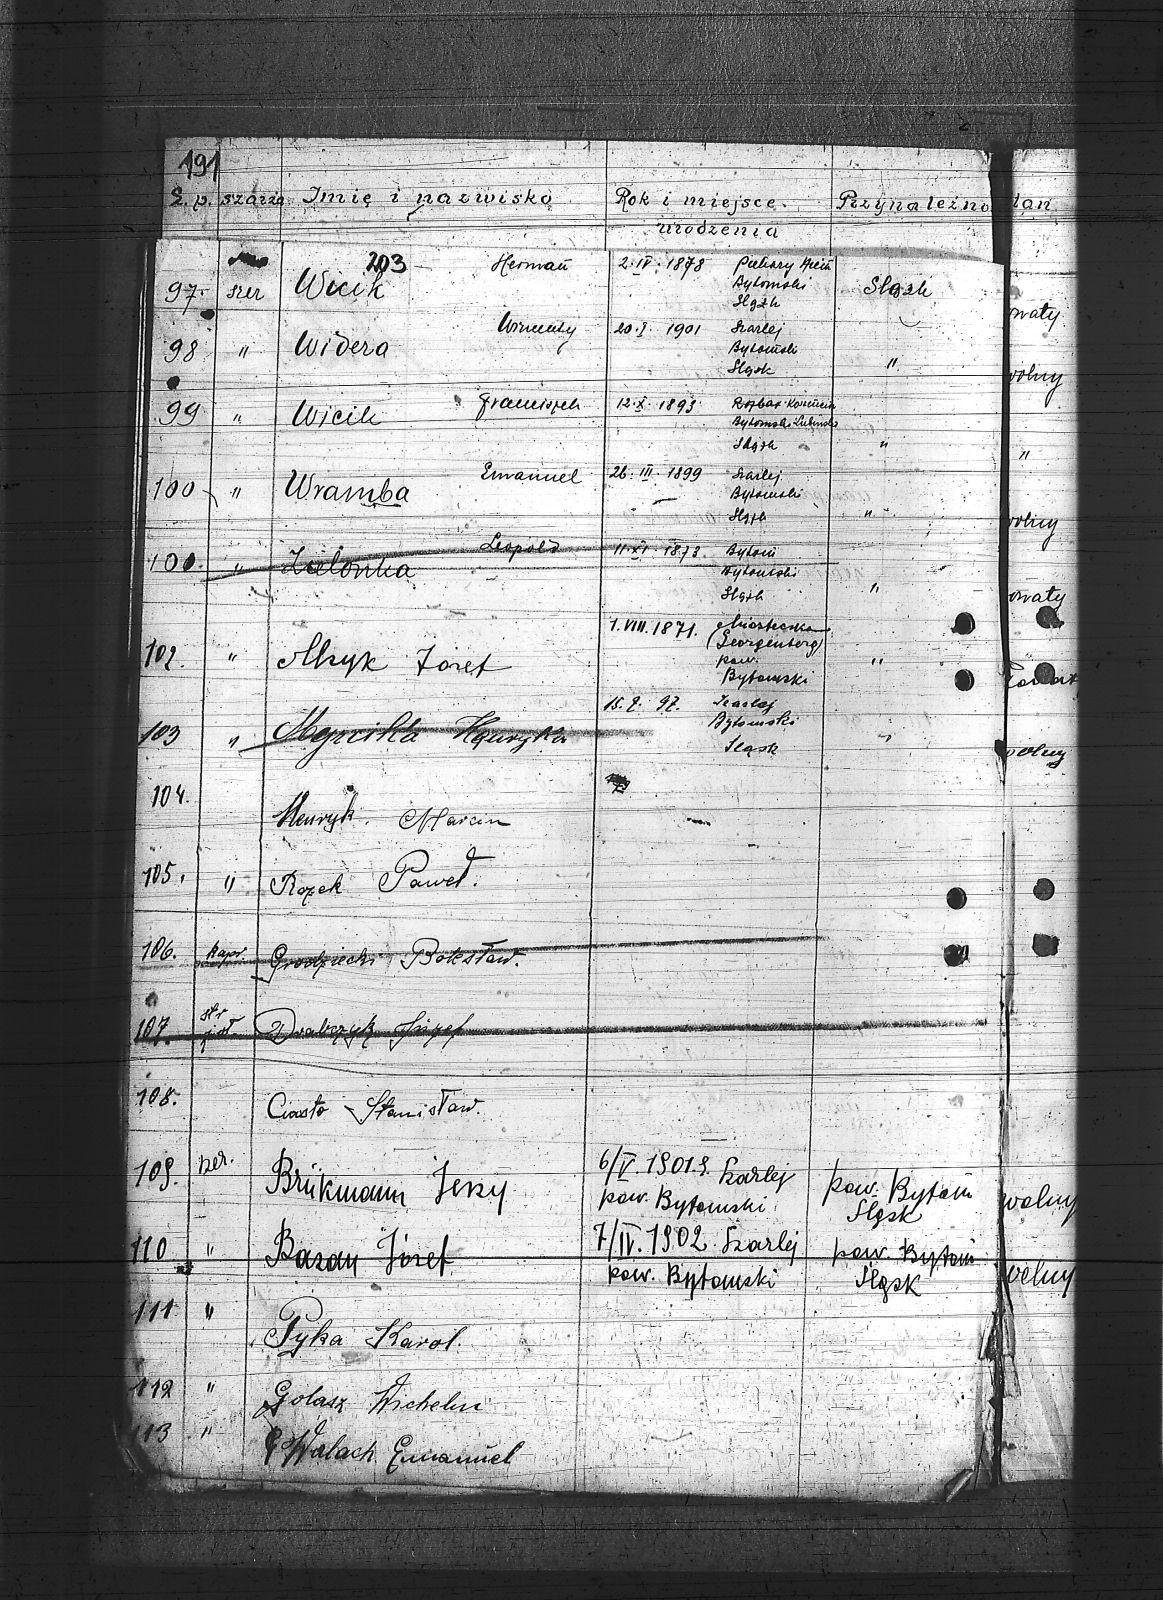 191
L. p. szarża Imię i nazwisko Rok i miejsce urodzenia Przynależno
203
97. szer Wicik Herman 2. IV. 1878 Piekary
Bytomski
Śląsk Śląsk
98 " Widera Wincenty 20. I. 1901 Szarlej
Bytomski
Śląsk " wolny
99 " Wicik Franciszek 12. X. 1893 Rozbark
Bytomski
Śląsk " "
100 " Wramba Emanuel 26. III. 1899 Szarlej
Bytomski
Śląsk " wolny
100. " Zielonka Leopold 11. XI. 1873. Bytom
Bytomski
Śląsk "
102. " Józef 1. VIII. 1871. Miasteczka
(Georgenberg)
pow.
Bytomski "
103 " 97. Szarlej
Bytomski
Śląsk " wolny
104. Henryk Marcin
105. " Rozek Paweł.
106. kapr. Grodziecki Bolesław.
107. Drabczyk Józef
108. Ciasto Stanisław.
109. szer. Brükmann Jerzy 6/V. 1901 Szarlej
pow. Bytomski pow. Bytom
Śląsk wolny
110 " Bazan Józef 7/IV. 1902. Szarlej
pow. Bytomski pow. Bytom
Śląsk wolny
111 " Pyka Karol.
112 " Golasz Wichelm
113 " Walach Emanuel